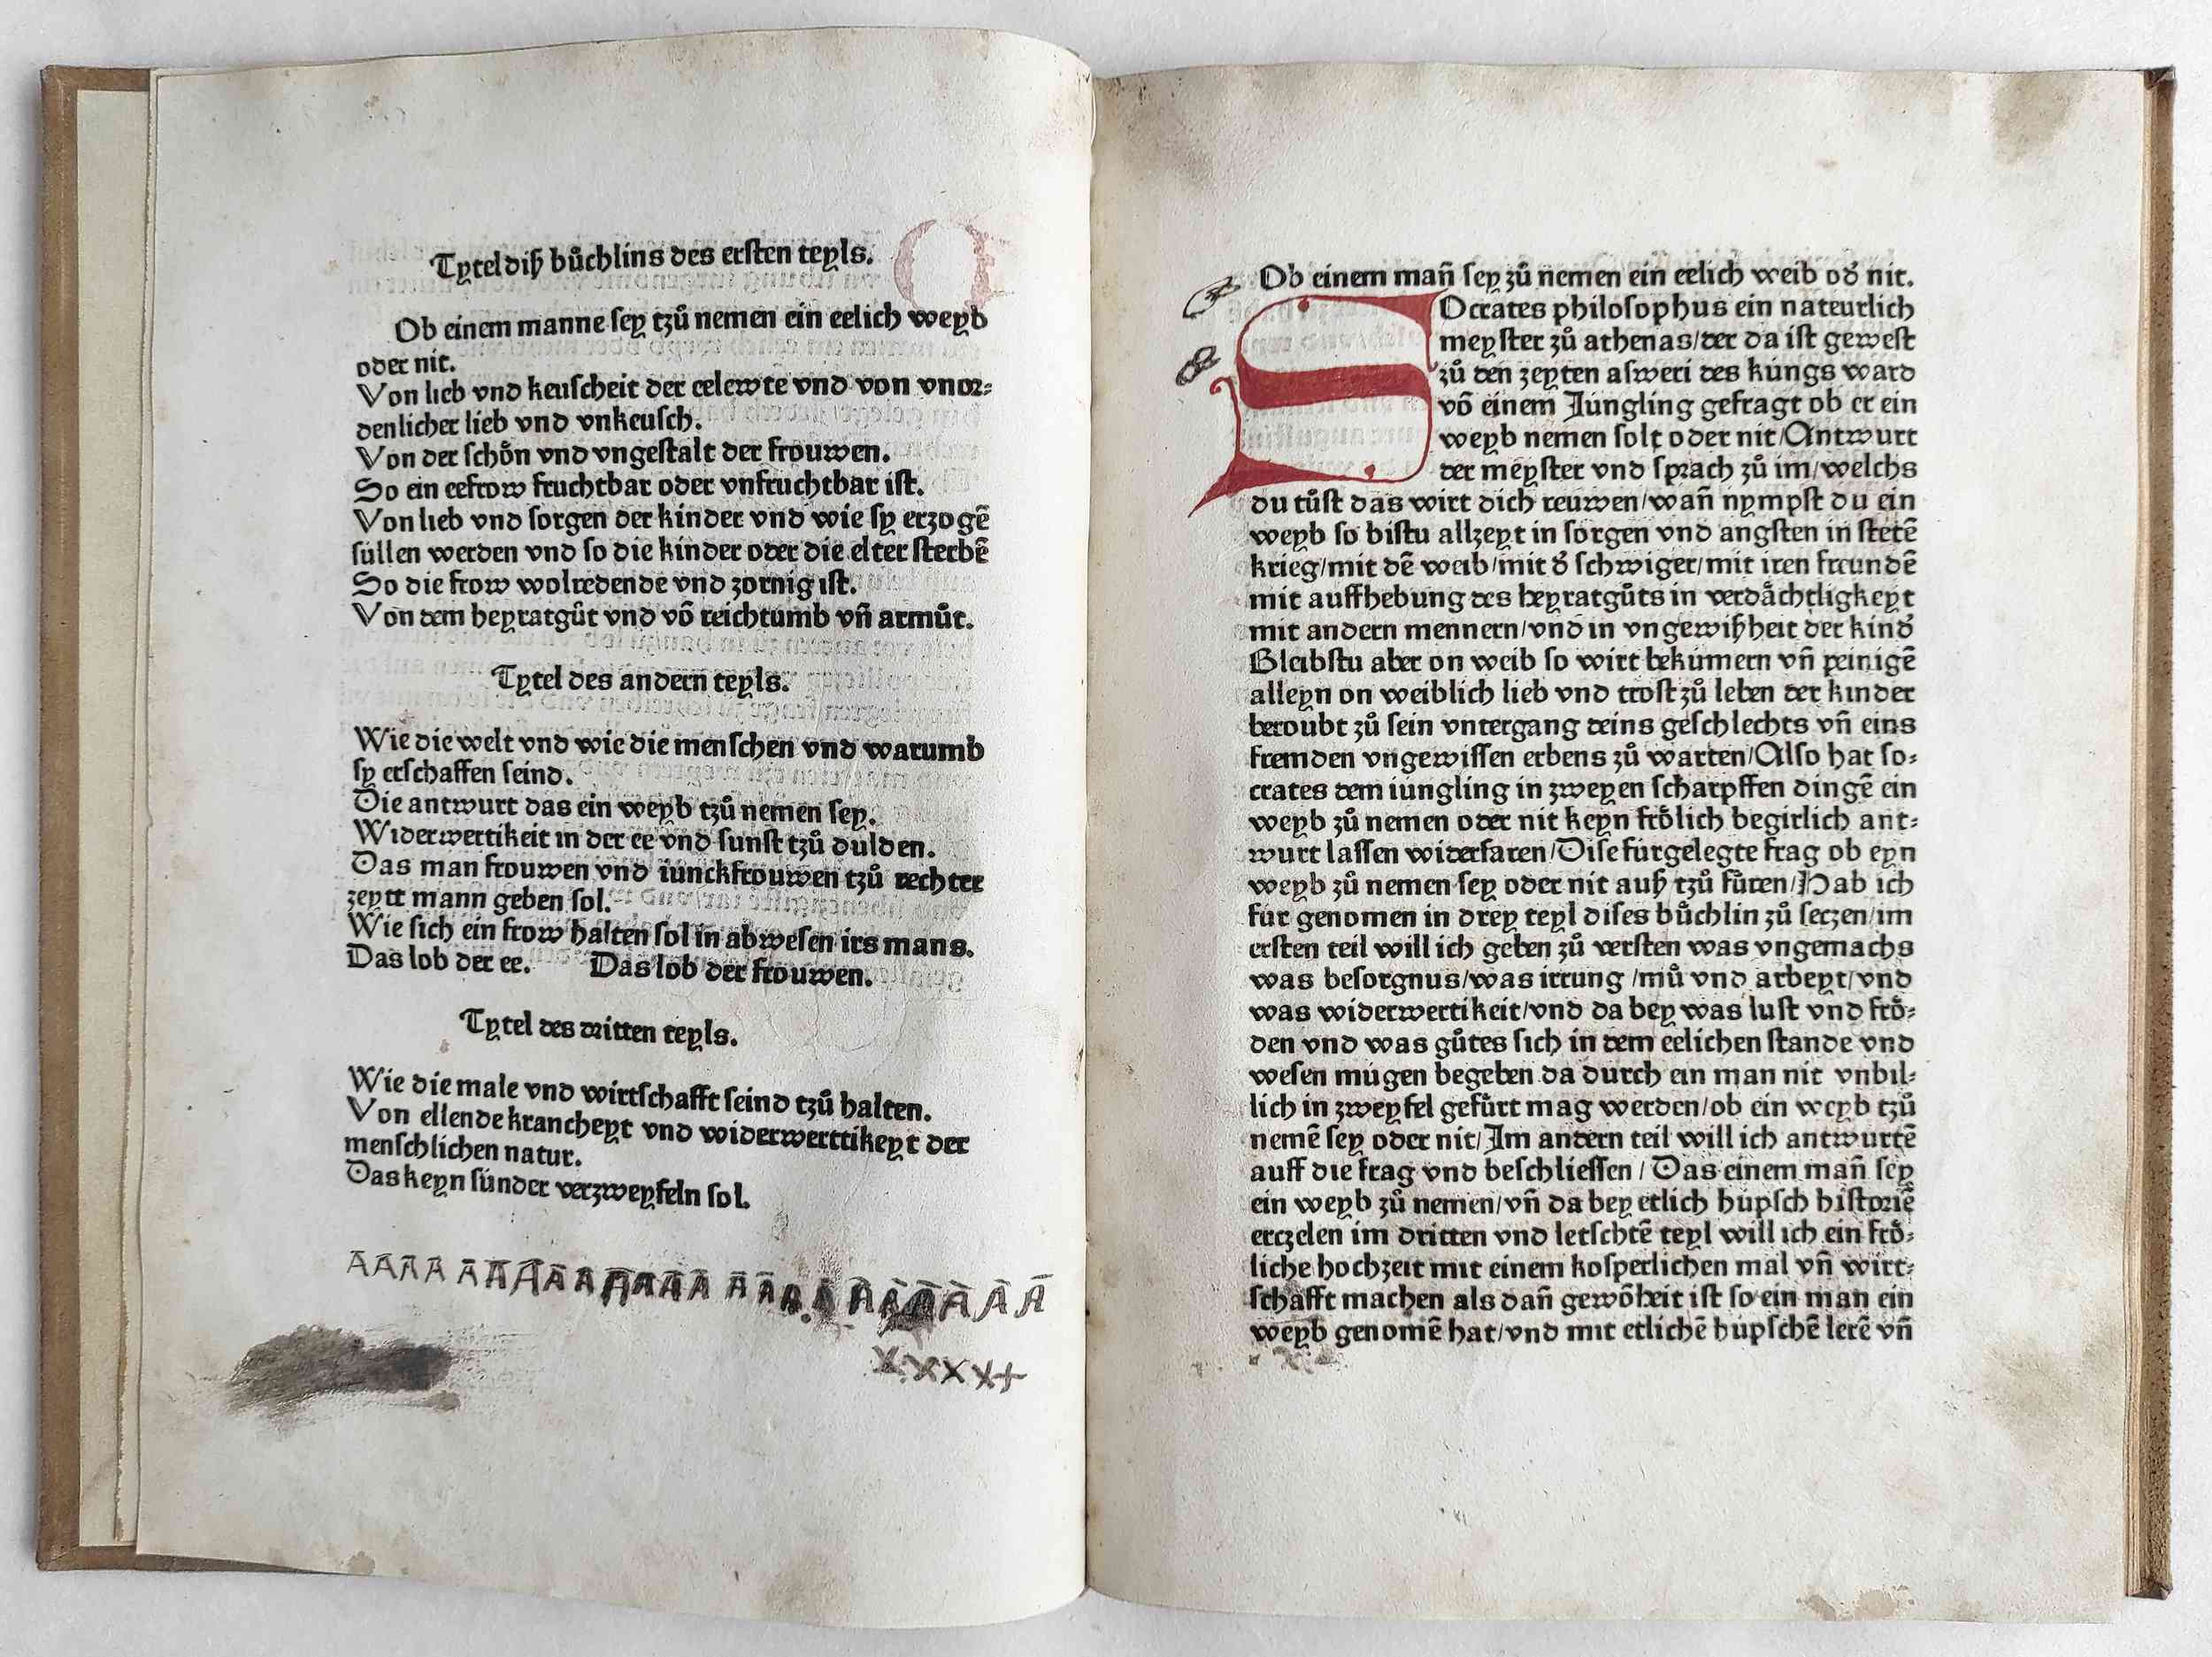 Tytel diß bůchlins des ersten teyls.
Ob einem manne sey tzů nemen ein eelich weyb
oder nit.
Von lieb vnd keuscheit der eelewte vnd von vnor⸗
denlicher lieb vnd vnkeusch.
Von der schön vnd vngestalt der frouwen.
So ein eefrow fruchtbar oder vnfruchtbar ist.
Von lieb vnd sorgen der kinder vnd wie sy erzogē
süllen werden vnd so die kinder oder die elter sterbē
So die frow wolredende vnd zornig ist.
Von dem heyratgůt vnd vō reichtumb vn̄ armůt.
Tytel des andern teyls.
Wie die welt vnd wie die menschen vnd warumb
sy erschaffen seind.
Die antwurt das ein weyb tzů nemen sey.
Widerwertikeit in der ee vnd sunst tzů dulden.
Das man frouwen vnd iunckfrouwen tzů rechter
zeytt mann geben sol.
Wie sich ein frow halten sol in abwesen irs mans.
Das lob der ee. Das lob der frouwen.
Tytel des dritten teyls.
Wie die male vnd wirtschafft seind tzů halten.
Von ellende kranckeyt vnd widerwerttikeyt der
menschlichen natur.
Das keyn sünder verzweyfeln sol.
Ob einem man̄ sey zů nemen ein eelich weib od̕ nit.
SOcrates philosophus ein nateurlich
meyster zů athenas/der da ist gewest
zů den zeyten asweri des kúngs ward
vō einem Jungling gefragt ob er ein
weyb nemen solt oder nit/Antwurt
der meyster vnd sprach zů im/welchs
du tůst das wirt dich reuwen/wan̄ nympst du ein
weyb so bistu allzeyt in sorgen vnd angsten in stetē
krieg/mit dē weib/mit d̕ schwiger/mit iren freundē
mit auffhebung des heyratgůts in verdächtligkeyt
mit andern mennern/vnd in vngewißheit der kind̕
Bleibstu aber on weib so wirt bekúmern vn̄ peinigē
alleyn on weiblich lieb vnd trost zů leben der kinder
beroubt zů sein vntergang deins geschlechts vn̄ eins
fremden vngewissen erbens zů warten/Also hat so⸗
crates dem iungling in zweyen scharpffen dingē ein
weyb zů nemen oder nit keyn frölich begirlich ant⸗
wurt lassen widerfaren/Dise fúrgelegte frag ob eyn
weyb zů nemen sey oder nit auß tzů fůren/Hab ich
fúr genomen in drey teyl dises bůchlin zů seczen/im
ersten teil will ich geben zů versten was vngemachs
was besorgnus/was irrung/mů vnd arbeyt/vnd
was widerwertikeit/vnd da bey was lust vnd frö⸗
den vnd was gůtes sich in dem eelichen stande vnd
wesen mugen begeben da durch ein man nit vnbil⸗
lich in zweyfel gefůrt mag werden/ob ein weyb tzů
nemē sey oder nit/Im andern teil will ich antwurtē
auff die frag vnd beschliessen/Das einem man̄ sey
ein weyb zů nemen/vn̄ da bey etlich húpsch historiē
erczelen im dritten vnd letschtē teyl will ich ein frö⸗
liche hochzeit mit einem kosperlichen mal vn̄ wirt⸗
schafft machen als dan̄ gewōheit ist so ein man ein
weyb genomē hat/vnd mit etlichē húpschē lerē vn̄